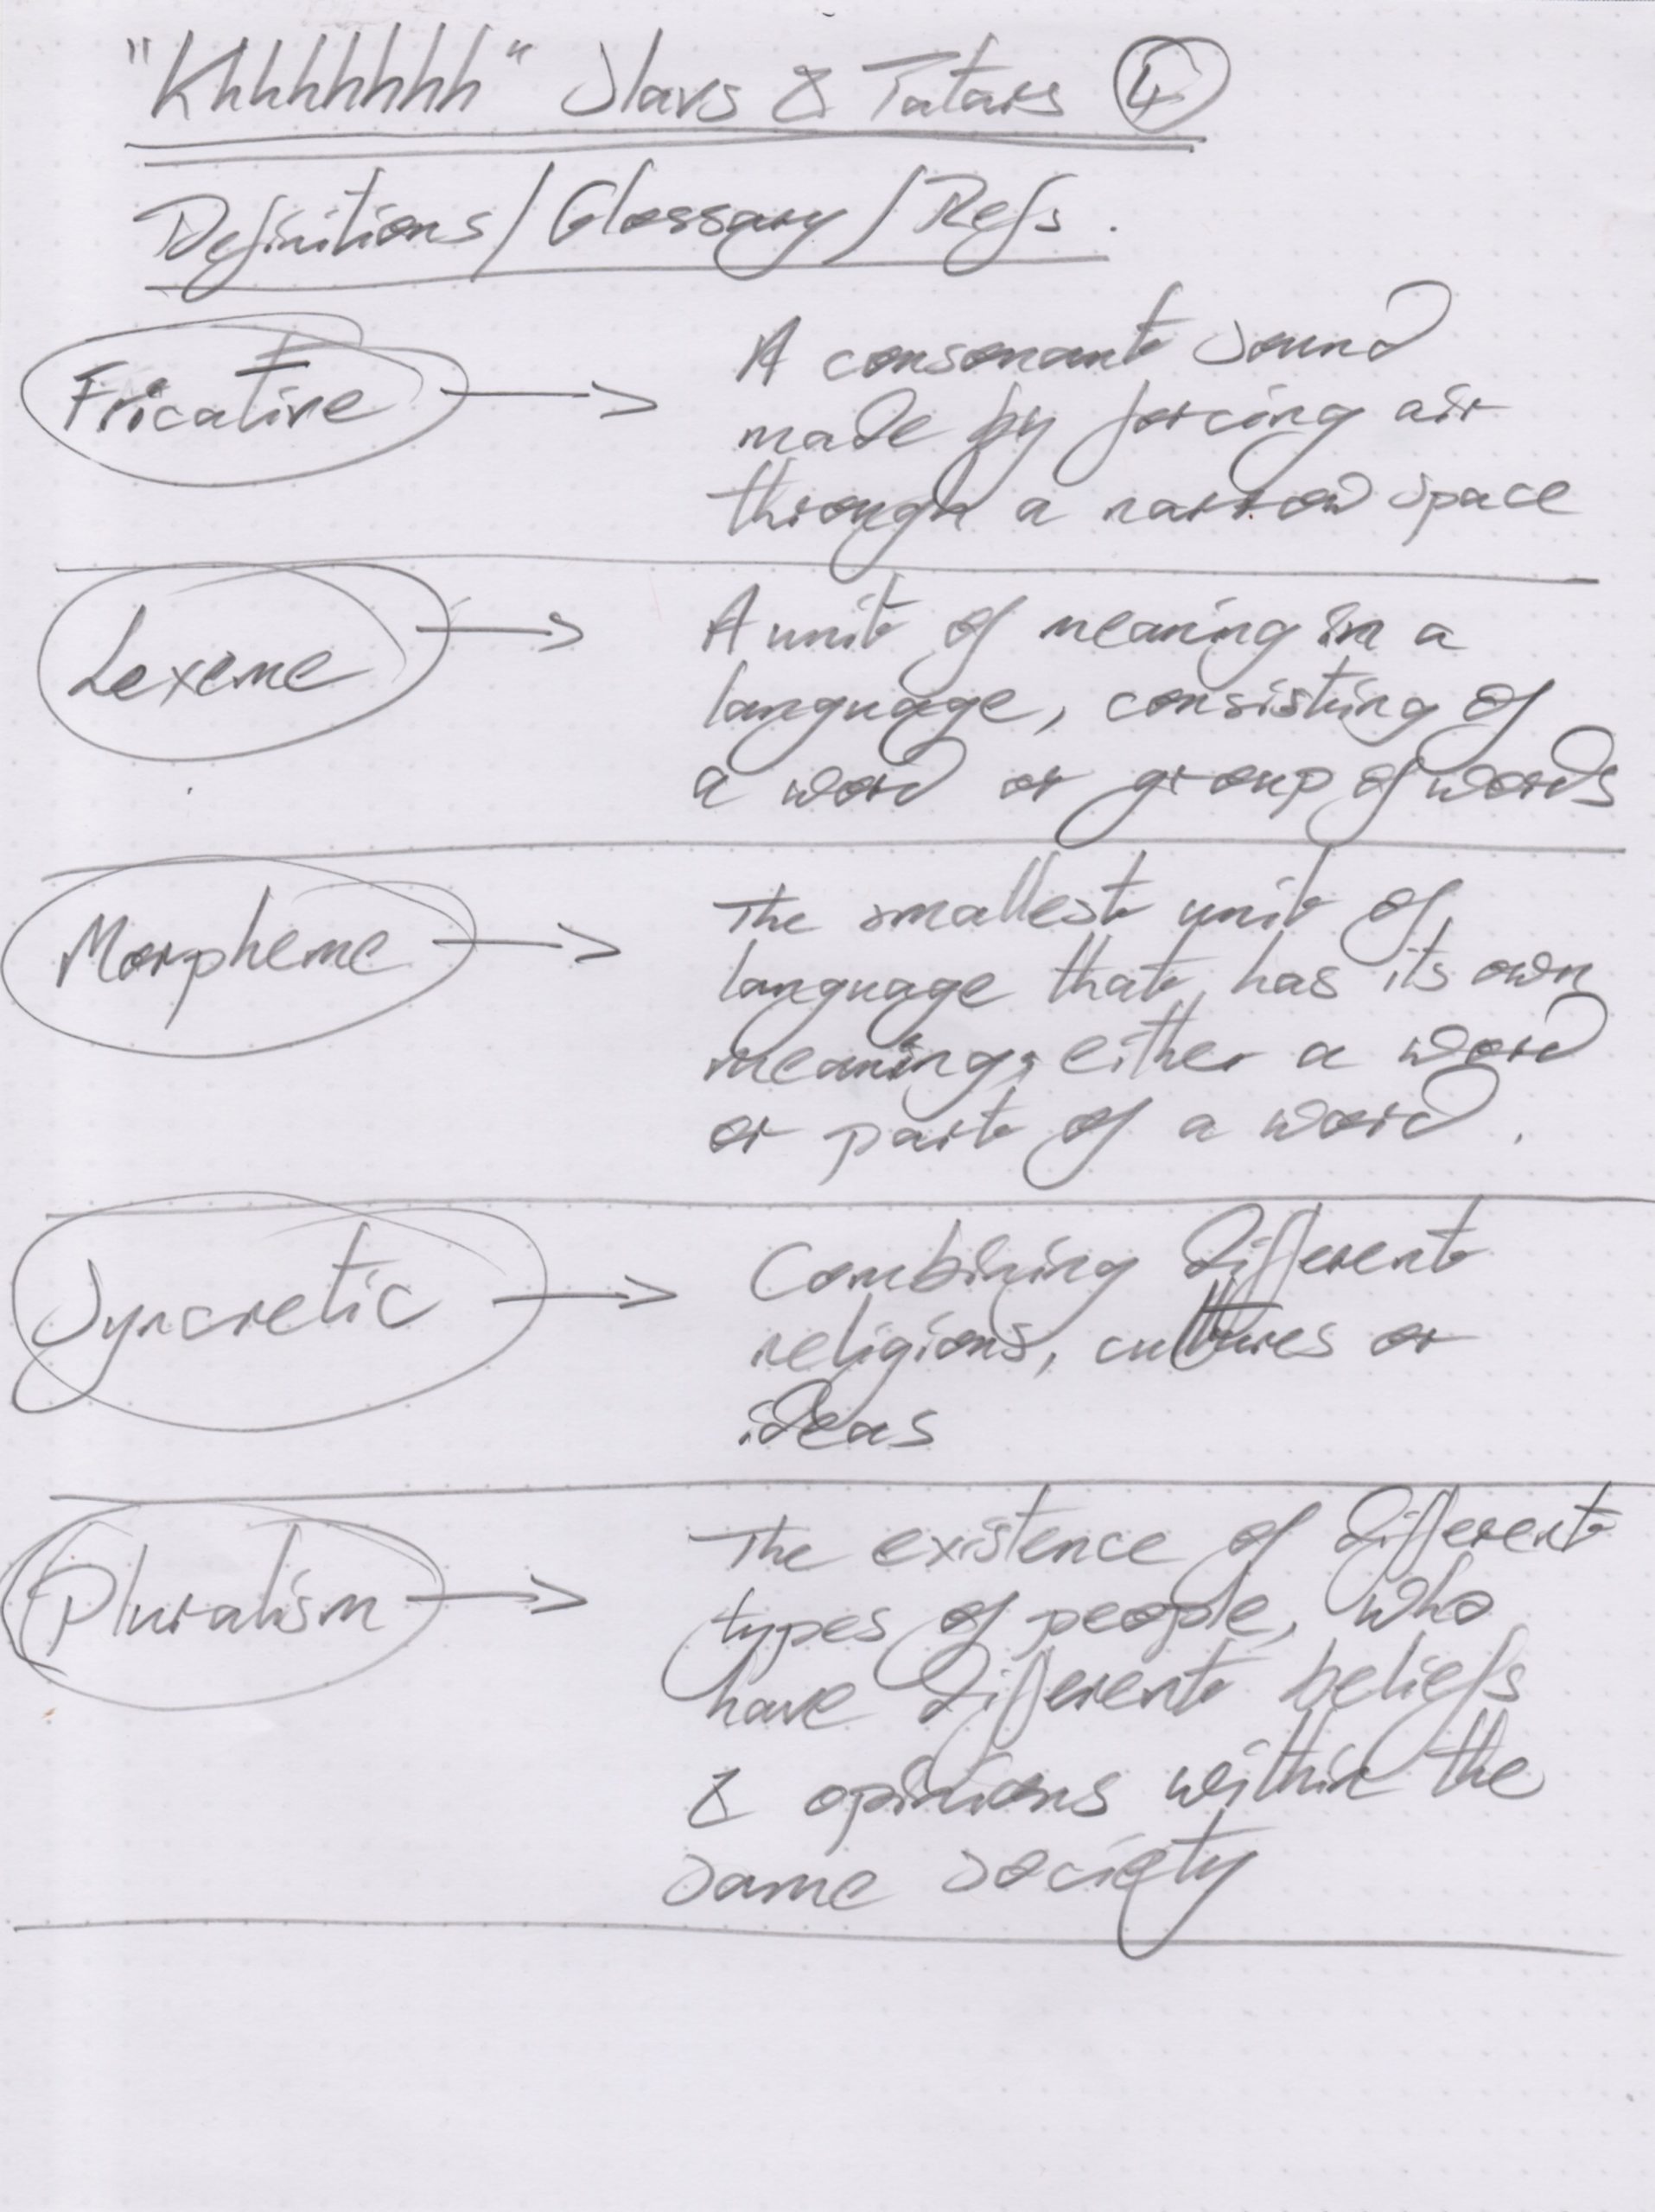 "Khhhhhhh" Slavs & Tatars 4
Definitions / Glossary / Refs.
Fricative → A consonant sound
made by forcing air
through a narrow space
Lexeme → A unit of meaning in a
language, consisting of
a word or group of words
Morpheme → The smallest unit of
language that has its own
meaning, either a word
or part of a word.
Syncretic → Combining different
religions, cultures or
ideas
Pluralism → The existence of different
types of people, who
have different beliefs
& opinions within the
same society